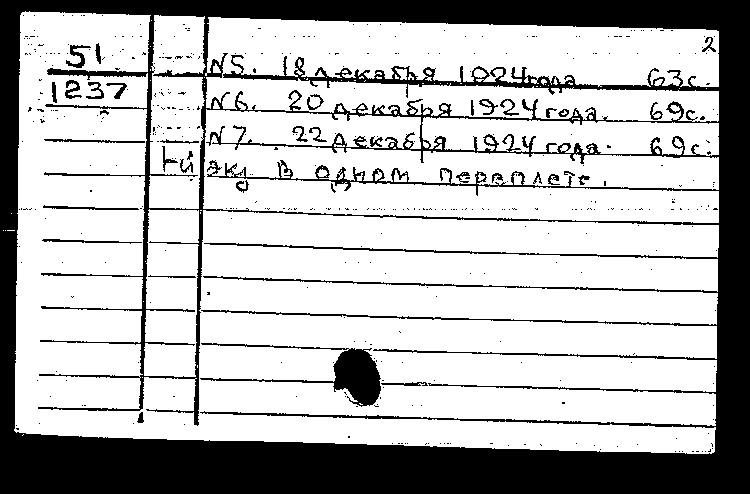 2
51 N5. 18 декабря 1924 года 63с.
1237 N6. 20 декабря 1924 года. 69с.
N7. 22 декабря 1924 года. 69с.
1-й экз в одном переплете.